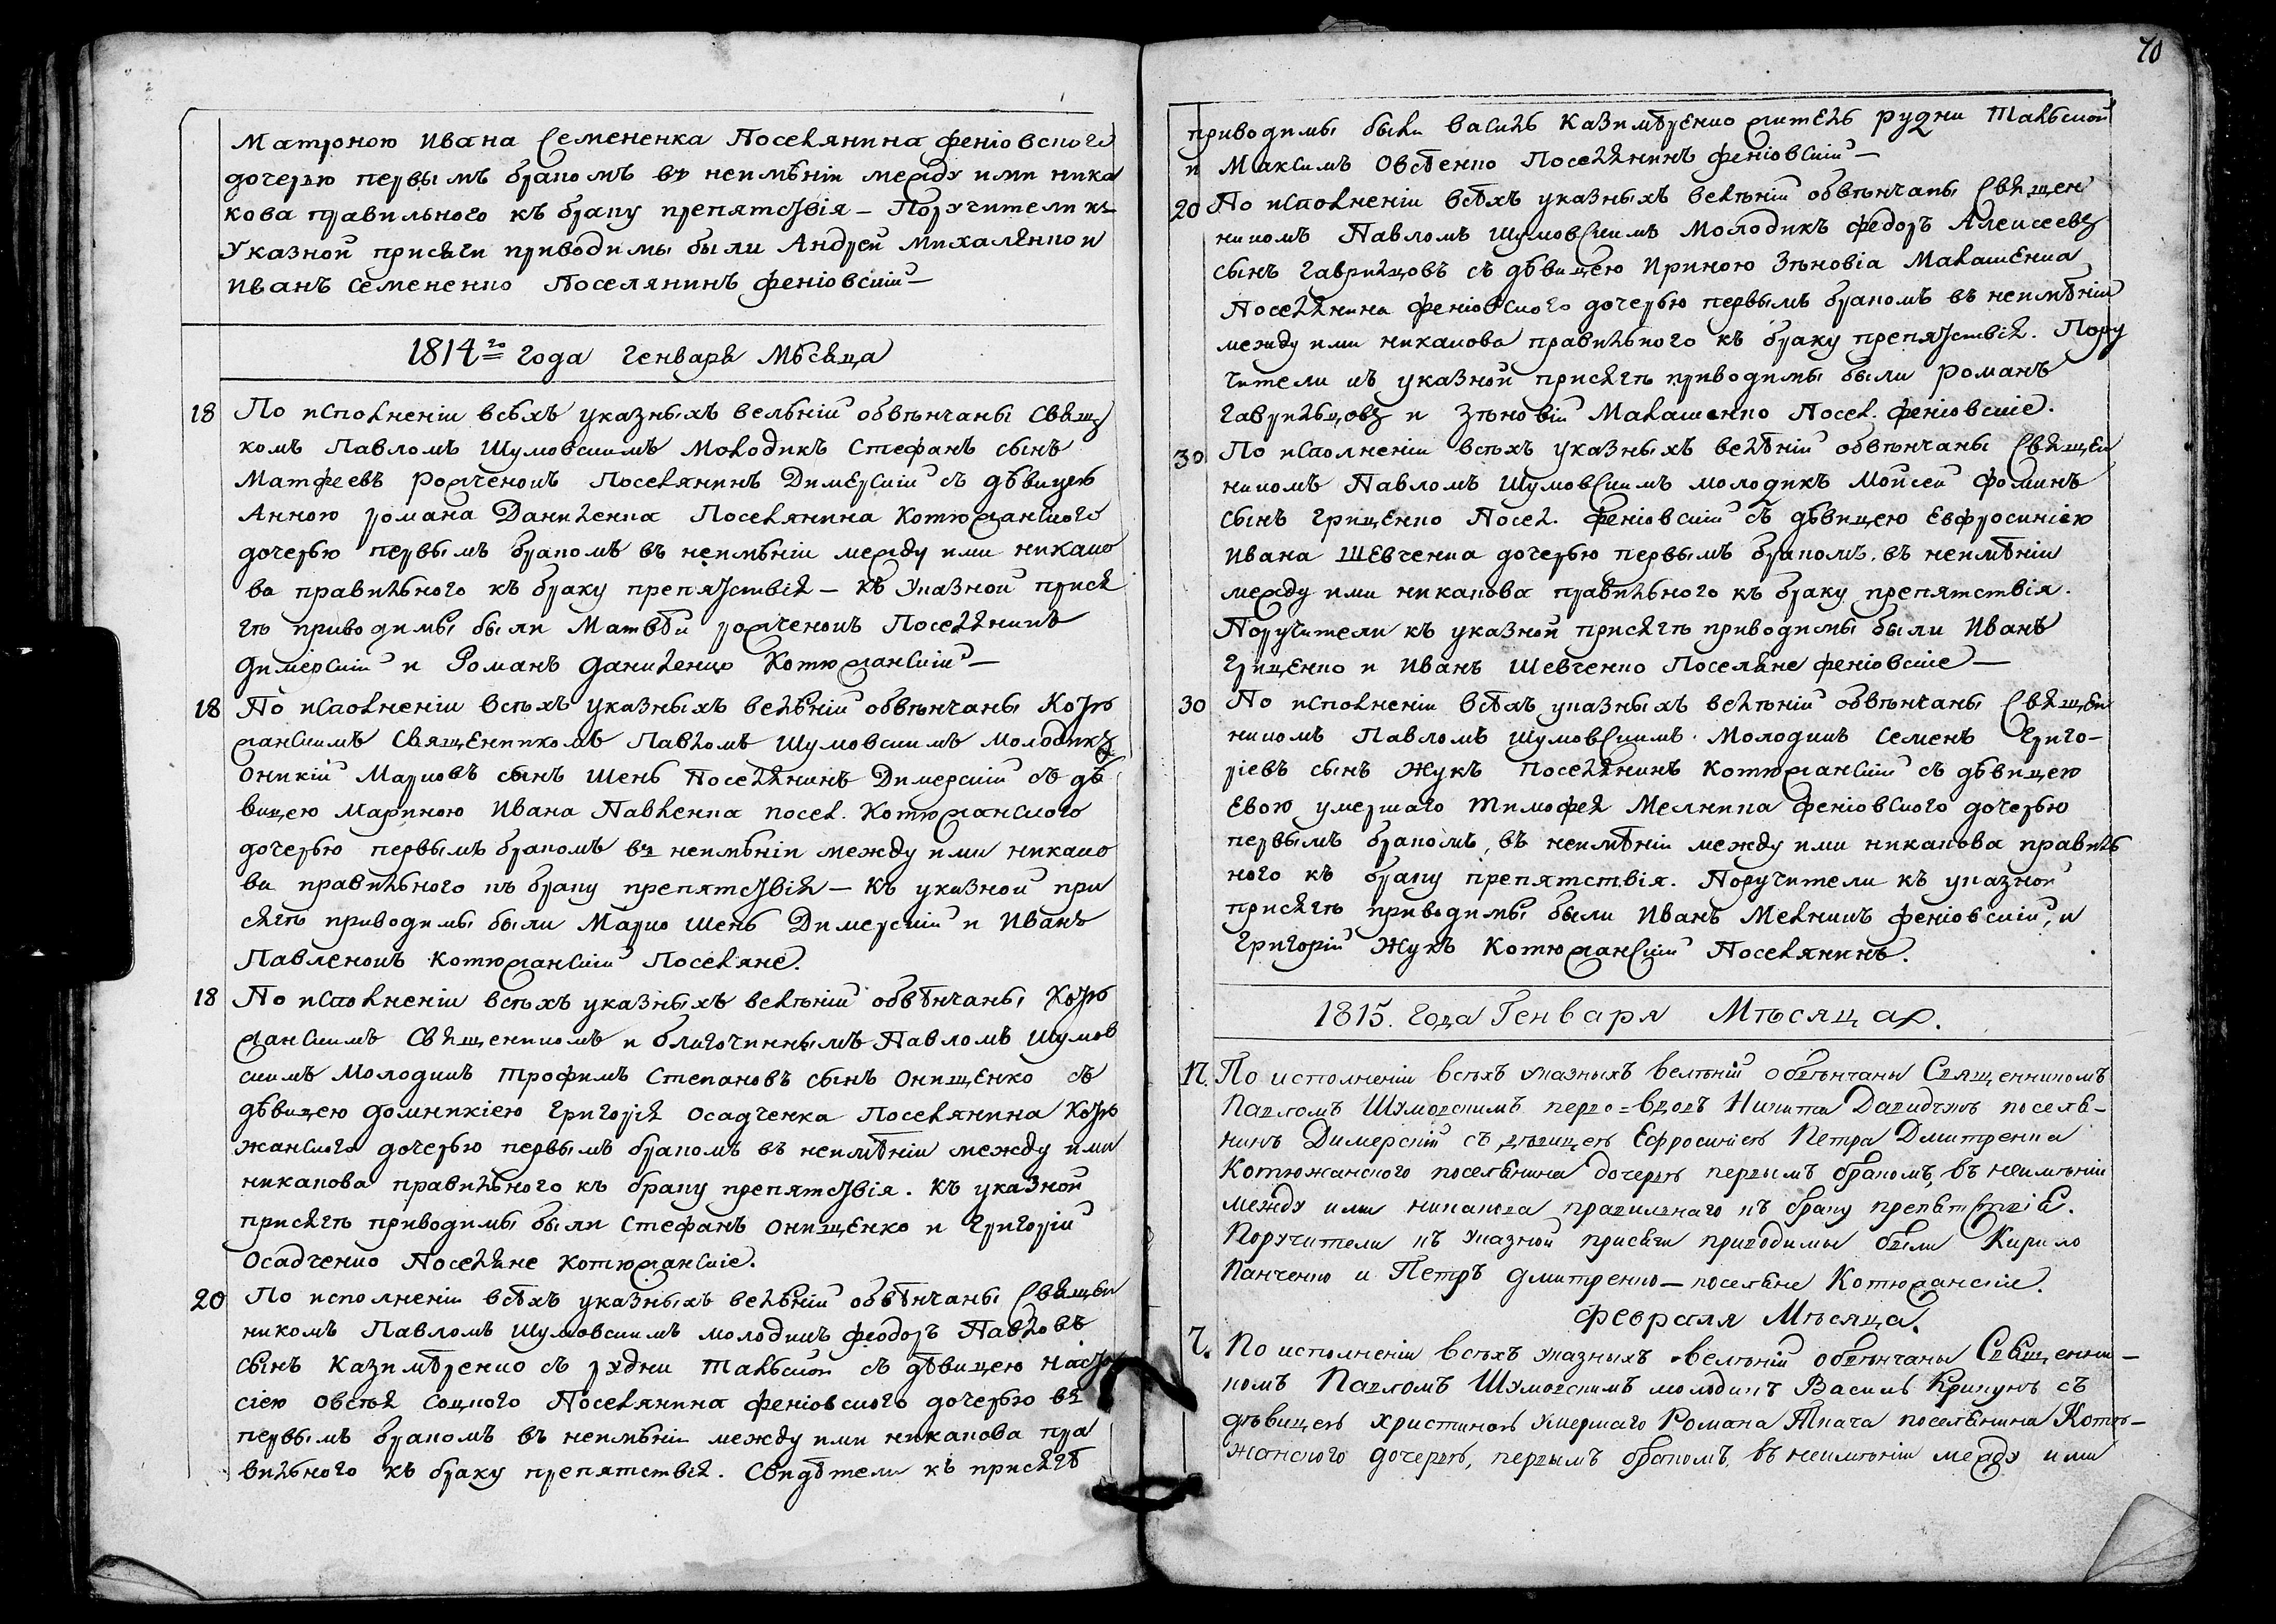 Матроною Ивана Семененка Поселянина феніовского
дочерью первымъ бракомъ въ неимѣніи между ими ника
кова правильного къ браку препятствія – Поручители къ
Указной присяги приводимы были Андрей Михалѣнко и
Иванъ Семененко Поселянинъ феніовскій –
1814го года Генваря Мѣсяца
18 По исполненіи всѣхъ указныхъ велѣній обвѣнчаны Свящ
комъ Павломъ Шумовскимъ Молодикъ Стефанъ сынъ
Матфеевъ Рожченокъ Поселянинъ Димерскій съ дѣвицею
Анною романа Даниленка Поселянина Котюжанского
дочерью первымъ бракомъ въ неимѣніи между ими никако
ва правильного къ браку препятствія – къ Указной прися
гѣ приводимы были Матвѣй рожченокъ Поселянинъ
димерскій и Романъ даниленко Котюжанскій –
18 По исполненіи всѣхъ указныхъ велѣній обвѣнчаны Котю
жанскимъ Священникомъ Павломъ Шумовскимъ Молодикъ
Оникій Марковъ сынъ Шень Поселянинъ Димерскій съ дѣ
вицею Мариною Ивана Павленка посел. Котюжанского
дочерью первымъ бракомъ въ неимѣніи между ими никако
ва правильного къ браку препятствія – къ указной при
сягѣ приводимы были Марко Шень Димерскій и Иванъ
Павленокъ Котюжанскій Поселяне.
18 По исполненіи всѣхъ указныхъ велѣній обвѣнчаны Котю
жанскимъ Священикомъ и благочиннымъ Павломъ Шумов
скимъ Молодикъ Трофимъ Степановъ сынъ Онищенко съ
дѣвицею домникіею Григорія Осадченка Поселянина Котю
жанского дочерью первымъ бракомъ въ неимѣніи между ими
никакова правильного къ браку препятствія. къ указной
присягѣ приводимы были Стефанъ Онищенко и Григорій
Осадченко Поселяне Котюжанскіе.
20 По исполненіи всѣхъ указныхъ велѣній обвѣнчаны Священ
никомъ Павломъ Шумовскимъ молодикъ феодоръ Павловъ
сынъ Казимѣренко съ рудни Тальской съ дѣвицею Наста
сіею Овсѣя Соцкого Поселянина феніовского дочерью въ
первымъ бракомъ въ неимѣніи между ими никакова пра
вильного къ браку препятствія. Свидѣтели къ присягѣ
70
приводимы были Василь Казимѣренко житель рудни Тальской
и Максимъ Овсѣенко Поселянинъ феніовскій –
20 По исполненіи всѣхъ указныхъ велѣній обвѣнчаны Священ
никомъ Павломъ Шумовскимъ Молодикъ федоръ Алексеевъ
сынъ Гаврильцовъ съ дѣвицею Ириною Зѣновіа Малашенка
Поселянина феніовского дочерью первымъ бракомъ въ неимѣніи
между ими никакова правильного къ браку препятствія. Пору
чители къ указной присягѣ приводимы были Романъ
Гаврильцовъ и Зѣновій Малашенко Посел. феніовскіе.
30 По исполненіи всѣхъ указныхъ велѣній обвѣнчаны Священ
никомъ Павломъ Шумовскимъ молодикъ Мойсей Фоминъ
сынъ Грищенко Посел. феніовскій съ дѣвицею Евфросиніею
Ивана Шевченка дочерью первымъ бракомъ, въ неимѣніи
между ими никакова правильного къ браку препятствія.
Поручители къ указной присягѣ приводимы были Иванъ
Грищенко и Иванъ Шевченко Поселяне феніовскіе –
30 По исполненіи всѣхъ указныхъ велѣній обвѣнчаны Священ
никомъ Павломъ Шумовскимъ Молодикъ Семенъ Григо–
ріевъ сынъ Жукъ Поселянинъ Котюжанскій съ дѣвицею
Евою умершаго Тимофея Мелника феніовского дочерью
первымъ бракомъ, въ неимѣніи между ими никакова правиль
ного къ браку препятствія. Поручители къ указной
присягѣ приводимы были Иванъ Мелникъ феніовскій, и
Григорій Жукъ Котюжанскій Поселянинъ.
1815. года Генваря Мѣсяца.
17. По исполненіи всѣхъ указныхъ велѣній обвѣнчаны Священникомъ
Павломъ Шумовскимъ перво=вдовъ Никита Давидчукъ поселя–
нинъ Димерскій съ дѣвицею Ефросиніею Петра Дмитренка
Котюжанского поселянина дочерью первымъ бракомъ, въ неимѣніи
между ими никакова правилнаго къ браку препятствія.
Поручители къ указной присяги приводимы были Кирило
Панченко и Петръ дмитренко – поселяне Котюжанскіе.
февраля Мѣсяца.
7. По исполненіи всѣхъ указныхъ велѣній обвѣнчаны Священни–
комъ Павломъ Шумовскимъ молодикъ Василь Крикунъ съ
дѣвицею христиною умершаго Романа Ткача поселянина Котю–
жанского дочерью, первымъ бракомъ, въ неимѣніи между ими